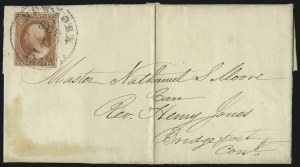 Master Nathaniel S. Moore
Care
Rev. Henry Jones
Bridgeport
Cont.